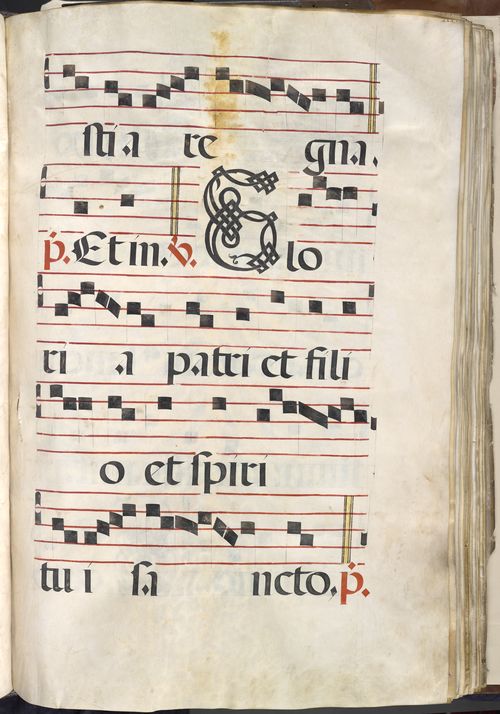 stia re gna.
p. Et in. v. Glo
ri a patri et fili
o et spiri
tu i sa ncto, p.